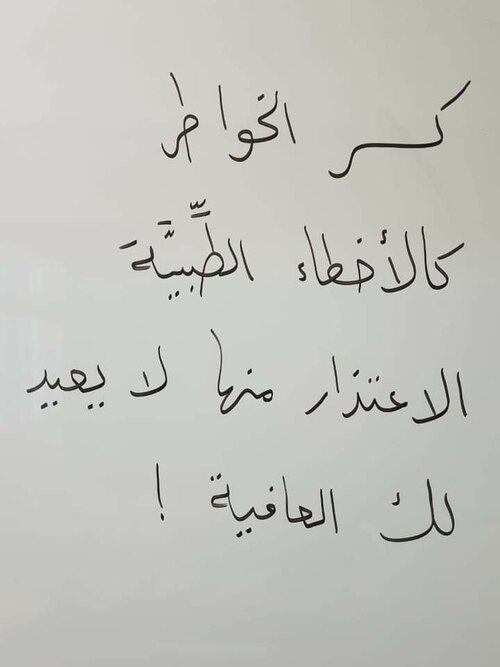 كسر الخواطر
كالأخطاء الطِّبيَّة
الاعتذار منها لا يعيد
لك العافية !